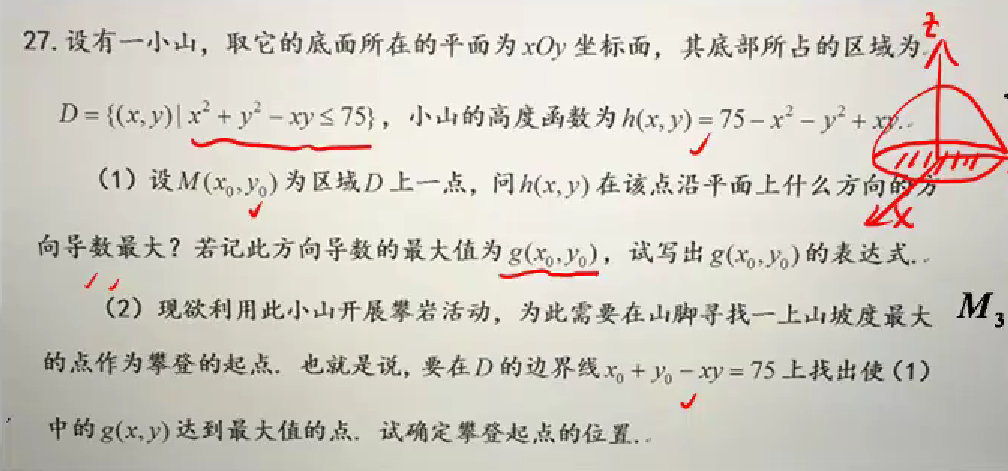 27. 设有一小山，取它的底面所在的平面为 xOy 坐标面，其底部所占的区域为
z
D = {(x, y)| x² + y² − xy ≤ 75}，小山的高度函数为 h(x, y) = 75 − x² − y² + xy.
(1) 设 M(x₀, y₀) 为区域 D 上一点，问 h(x, y) 在该点沿平面上什么方向的方
x
向导数最大？若记此方向导数的最大值为 g(x₀, y₀)，试写出 g(x₀, y₀) 的表达式.
(2) 现欲利用此小山开展攀岩活动，为此需要在山脚寻找一上山坡度最大
M₃
的点作为攀登的起点．也就是说，要在 D 的边界线 x₀ + y₀ − xy = 75 上找出使 (1)
中的 g(x, y) 达到最大值的点．试确定攀登起点的位置.